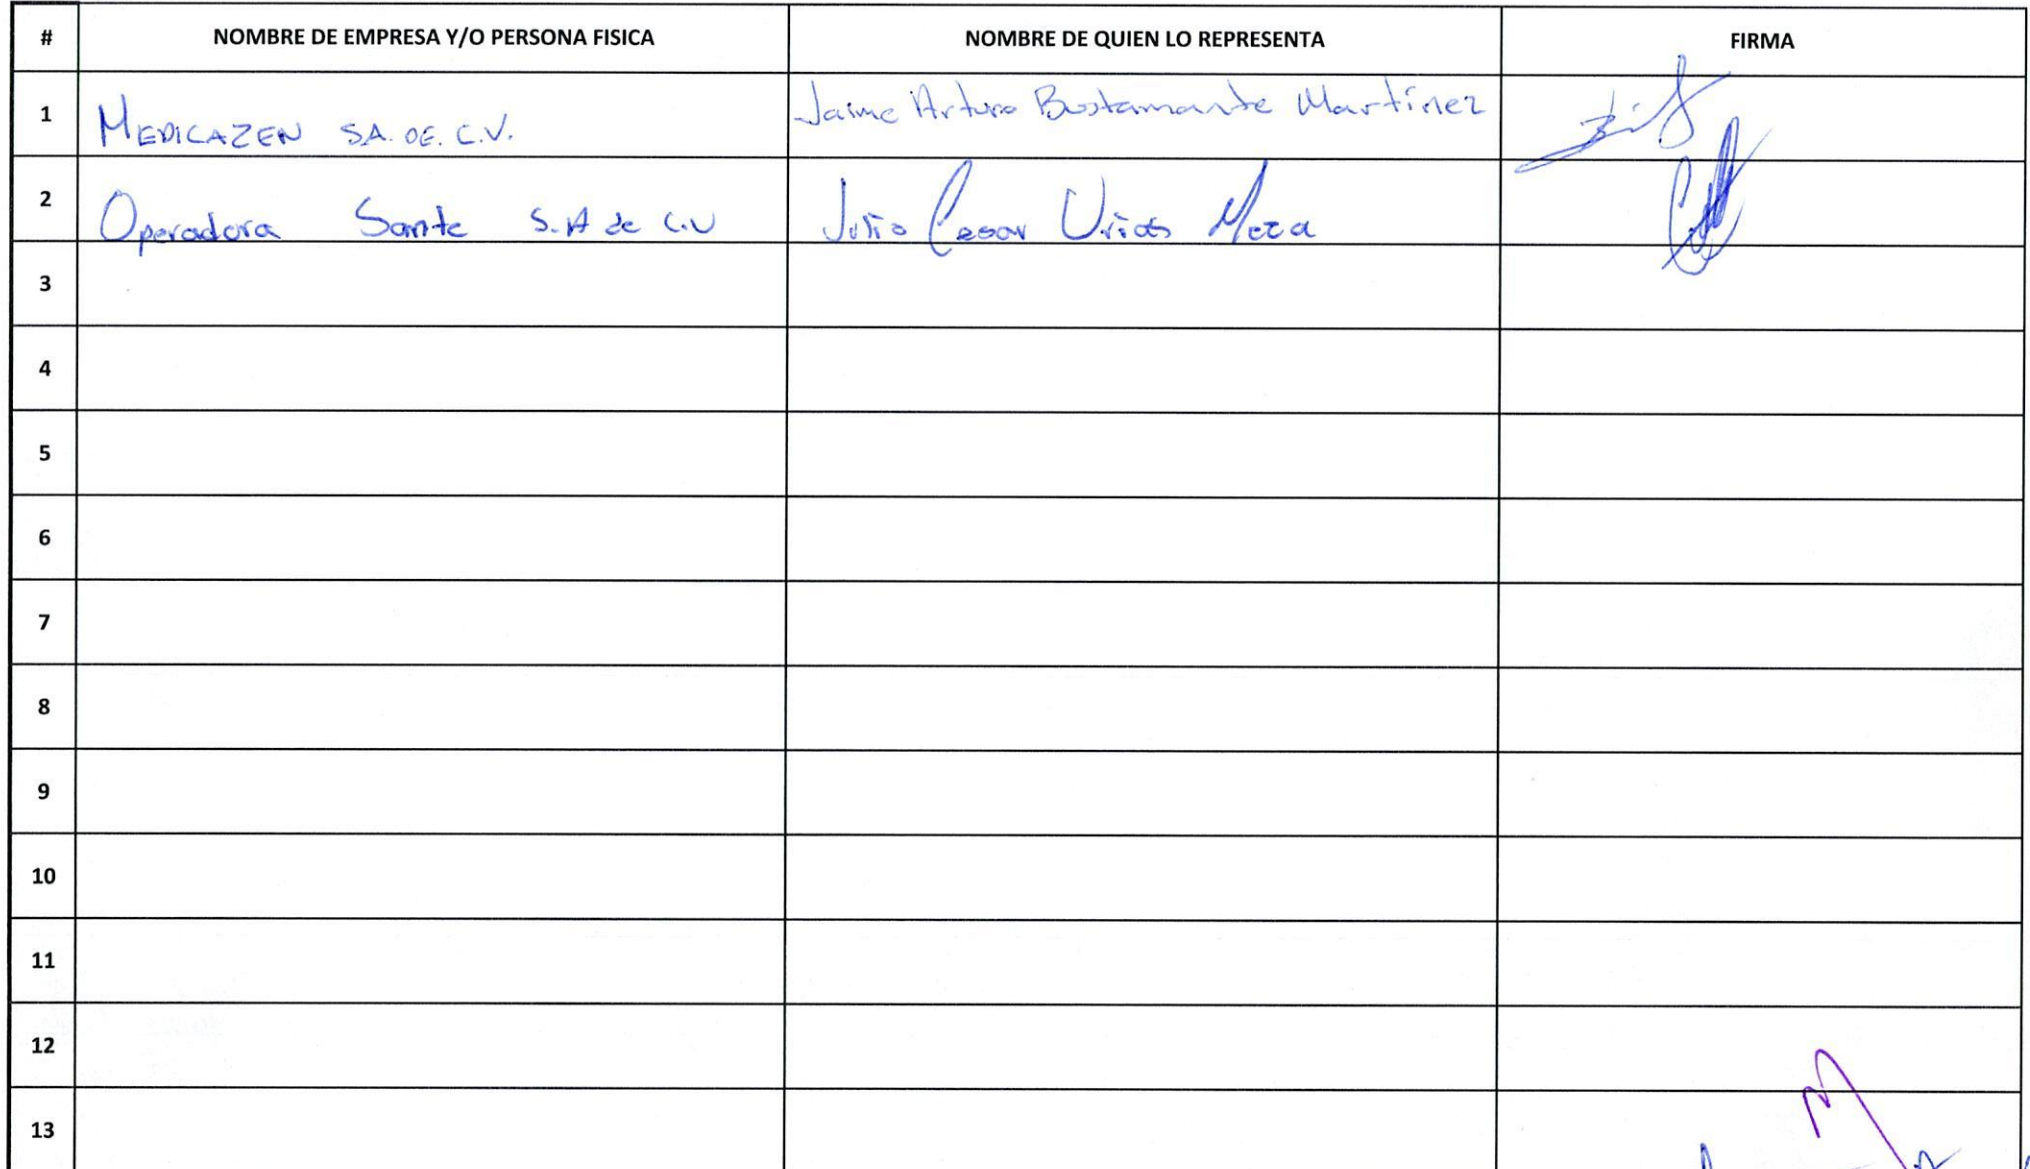 # NOMBRE DE EMPRESA Y/O PERSONA FISICA NOMBRE DE QUIEN LO REPRESENTA FIRMA
1 MEDICAZEN SA. DE. C.V. Jaime Arturo Bustamante Martínez
2 Operadora Sante S.A de C.V Julio Cesar Urias Meza
3
4
5
6
7
8
9
10
11
12
13